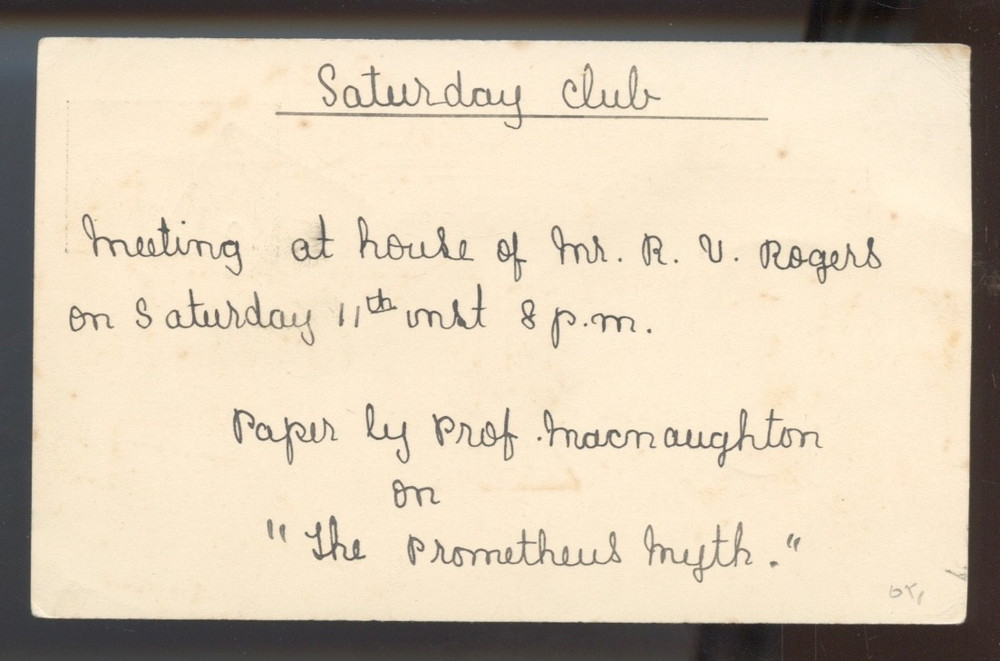 Saturday Club
Meeting at house of Mr. R. V. Rogers
on Saturday 11th inst 8 p.m.
Paper by Prof. Macnaughton
on
"The Prometheus Myth."